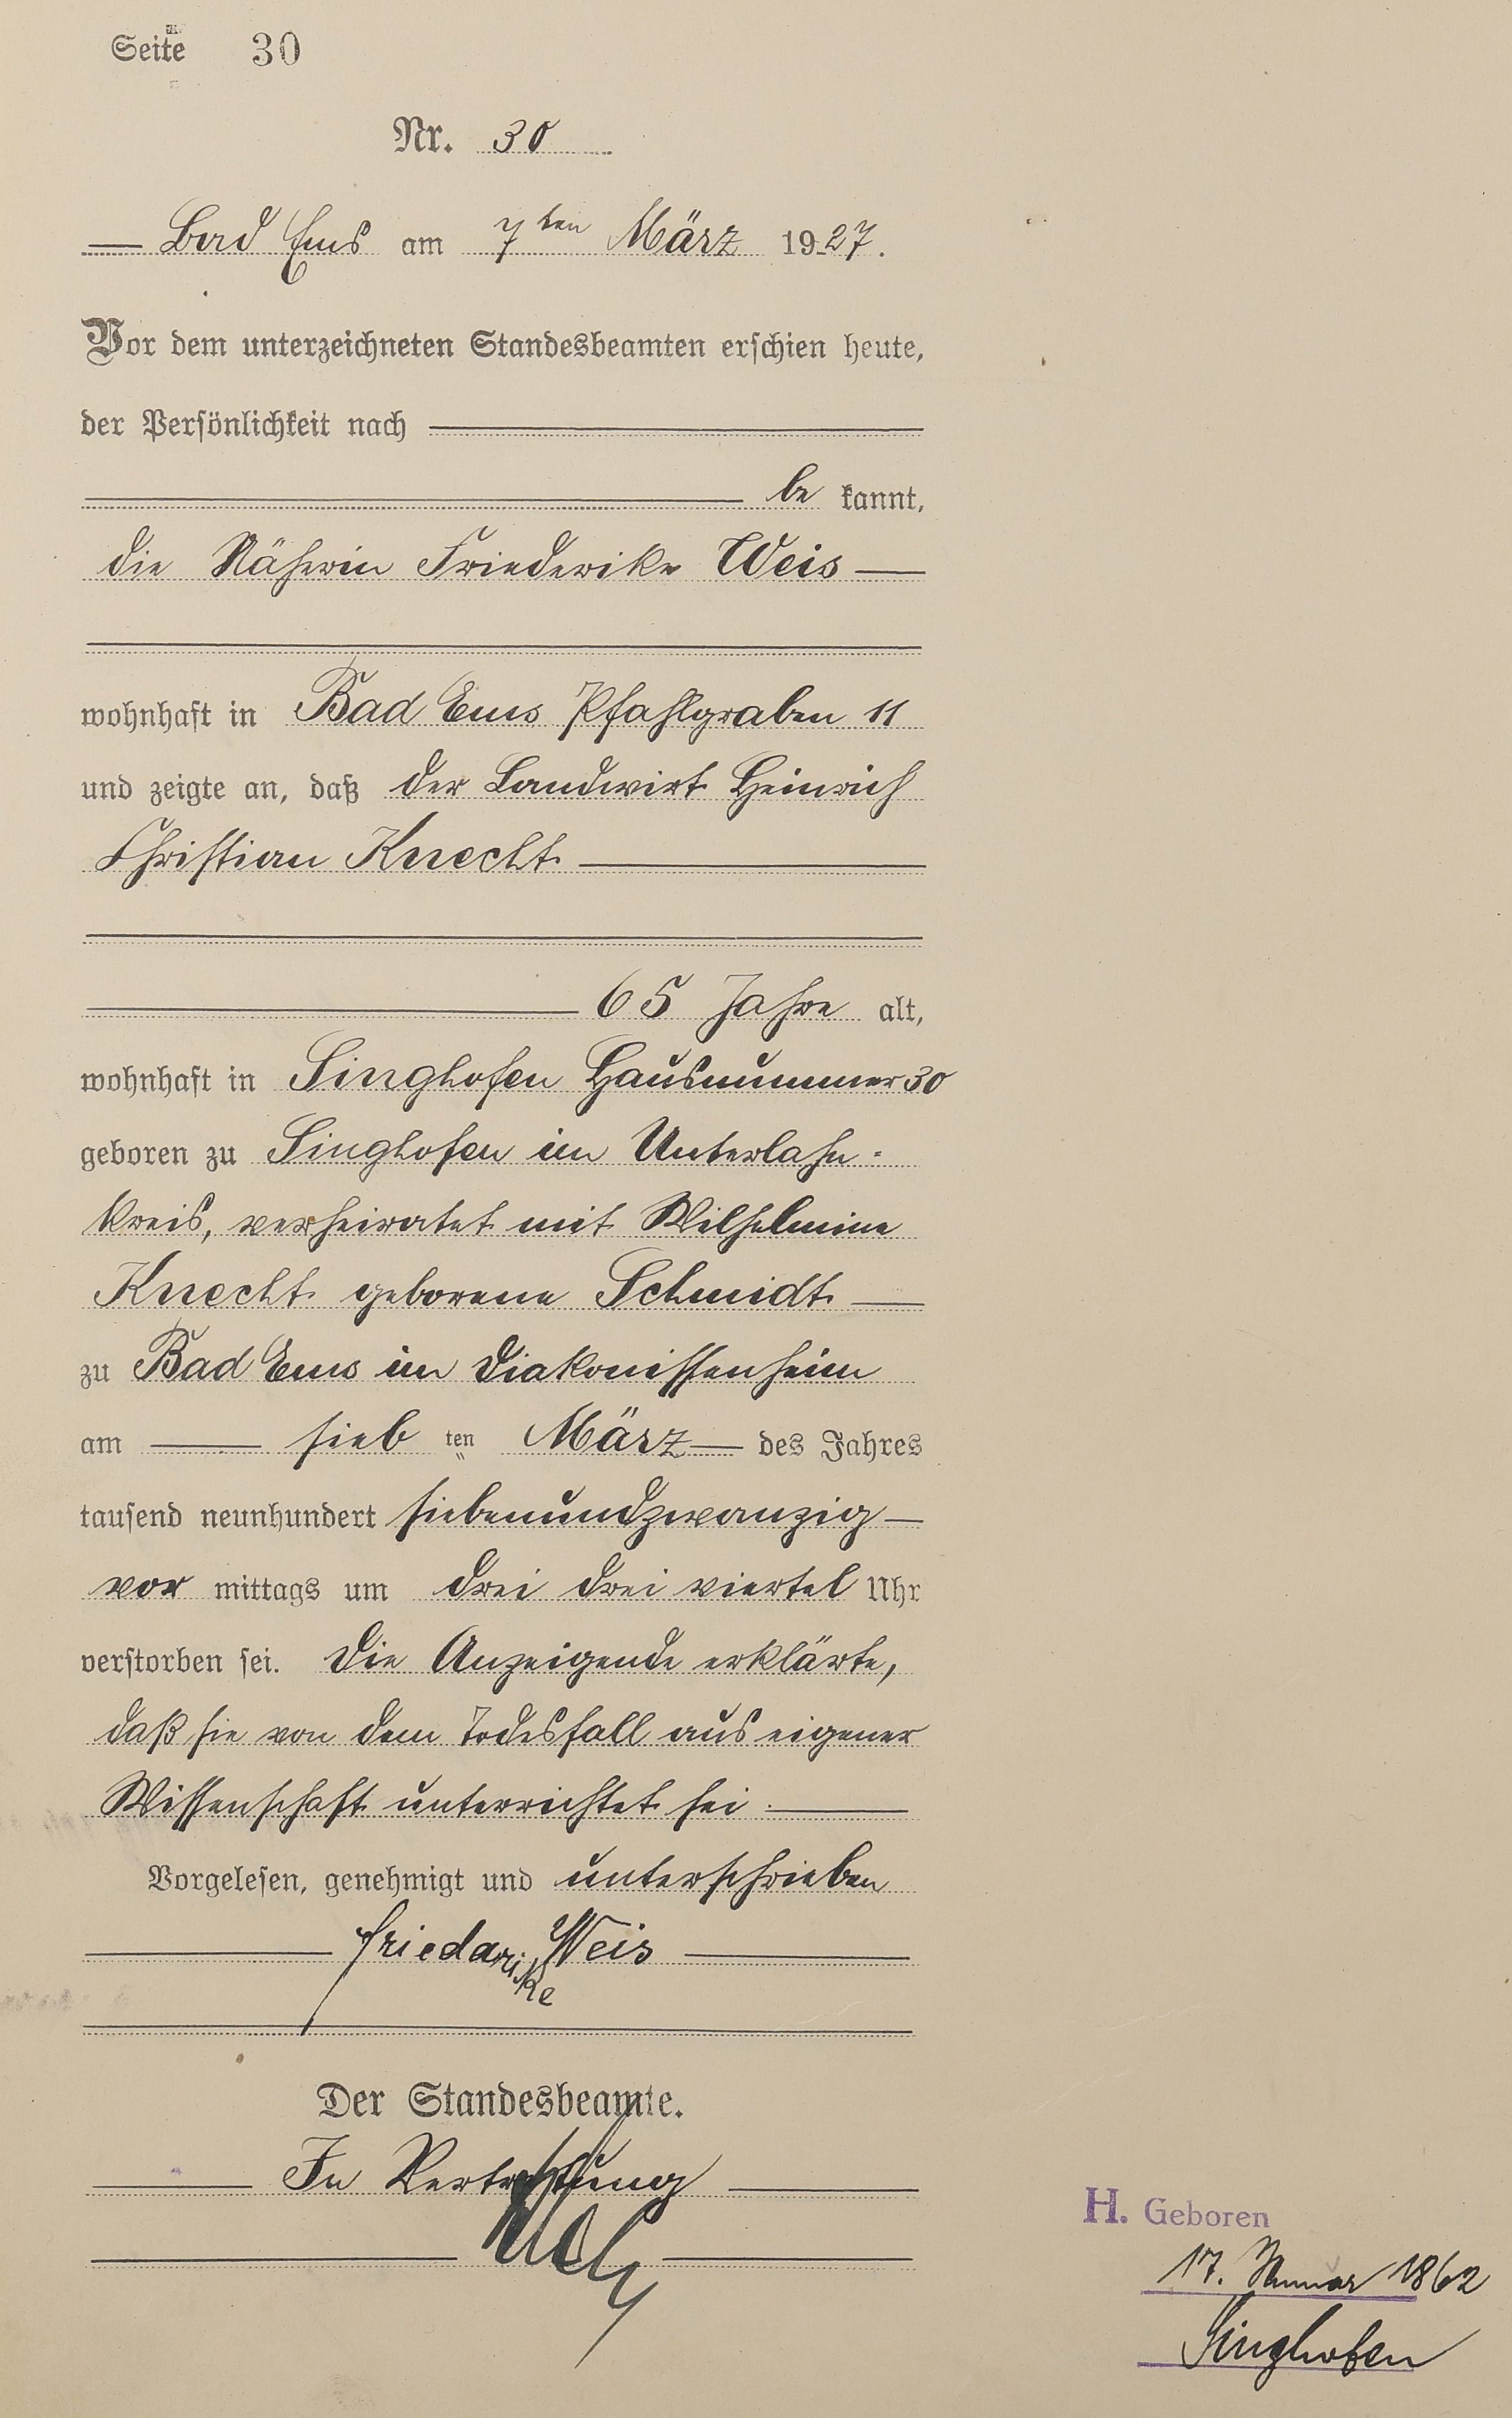 Seite 30
Nr. 30
Bad Ems am 7ten März 1927.
Vor dem unterzeichneten Standesbeamten erschien heute,
der Persönlichkeit nach
be kannt,
die Näherin Friederike Weis
wohnhaft in Bad Ems Pfahlgraben 11
und zeigte an, daß der Landwirt Heinrich
Christian Knecht
65 Jahre alt,
wohnhaft in Singhofen Hausnummer 30
geboren zu Singhofen im Unterlahn-
kreis, verheiratet mit Wilhelmine
Knecht geborene Schmidt
zu Bad Ems im Diakonissenheim
am sieb ten März des Jahres
tausend neunhundert siebenundzwanzig
vor mittags um drei drei viertel Uhr
verstorben sei. Die Anzeigende erklärte,
daß sie von dem Todesfall aus eigener
Wissenschaft unterrichtet sei.
Vorgelesen, genehmigt und unterschrieben
Friedarike Weis
Der Standesbeamte.
In Vertretung
H. Geboren
17. Januar 1862
Singhofen